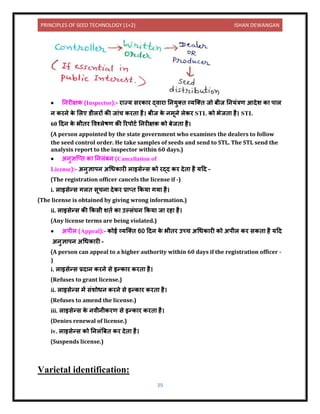 PRINCIPLES OF SEED TECHNOLOGY (1+2) ISHAN DEWANGAN
Controller
Written order
Dealer
If essential in Public Interest.
• निरीक्षक (Inspector):- राज्य सरकार द्वारा नियुक्त व्यक्ति जो बीज नियंत्रण आदेश का पाल
न करने के लिए डीलरों की जांच करता है। बीज के नमूने लेकर STL को भेजता है। STL
60 दिन के भीतर विश्लेषण की रिपोर्ट निरीक्षक को भेजता है।
(A person appointed by the state government who examines the dealers to follow
the seed control order. He take samples of seeds and send to STL. The STL send the
analysis report to the inspector within 60 days.)
• अनुज्ञप्ति का निलंबन (Cancellation of
License):- अनुज्ञापन अधिकारी लाइसेन्स को रद्द कर देता है यदि –
(The registration officer cancels the license if -)
i. लाइसेन्स गलत सूचना देकर प्राप्त किया गया है।
(The license is obtained by giving wrong information.)
ii. लाइसेन्स की किसी शर्त का उल्लंघन किया जा रहा है।
(Any license terms are being violated.)
• अपील (Appeal):- कोई व्यक्ति 60 दिन के भीतर उच्च अधिकारी को अपील कर सकता है यदि
अनुज्ञापन अधिकारी –
(A person can appeal to a higher authority within 60 days if the registration officer -
)
i. लाइसेन्स प्रदान करने से इन्कार करता है।
(Refuses to grant license.)
ii. लाइसेन्स में संशोधन करने से इन्कार करता है।
(Refuses to amend the license.)
iii. लाइसेन्स के नवीनीकरण से इन्कार करता है।
(Denies renewal of license.)
iv. लाइसेन्स को निलंबित कर देता है।
(Suspends license.)
Varietal identification:
39